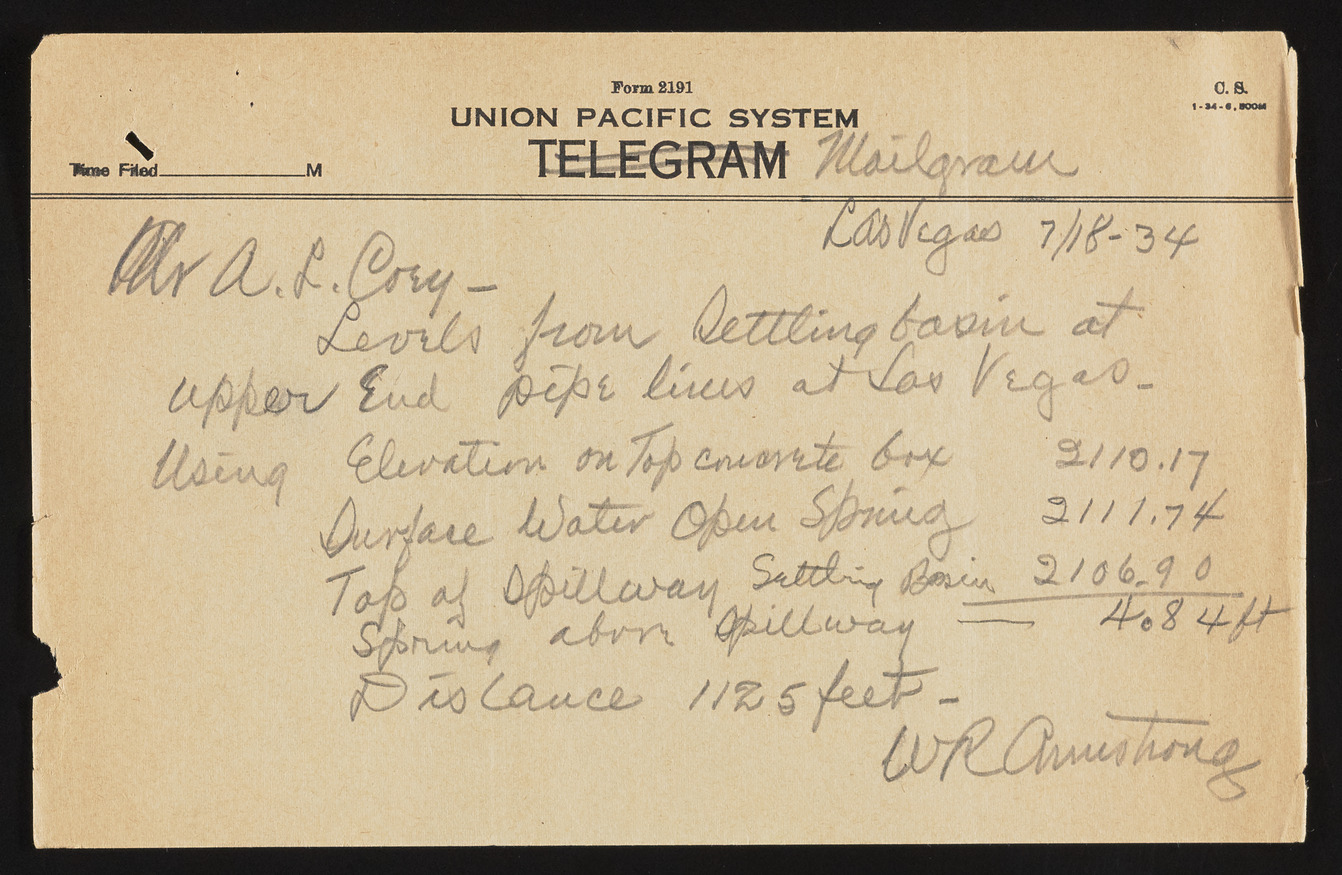 Form 2191
C. S.
1-34-6, 500M
UNION PACIFIC SYSTEM
TELEGRAM Mailgram
Time Filed M
Las Vegas 7/18-34
Mr A. L. Coey -
Levels from Settling basin at
upper End pipe lines at Las Vegas -
Using Elevation on Top concrete box 2110.17
Surface Water Open Spring 2111.74
Top of Spillway Settling Basin 2106.90
Spring above Spillway — 4.84 ft
Distance 1125 feet -
WR Armstrong